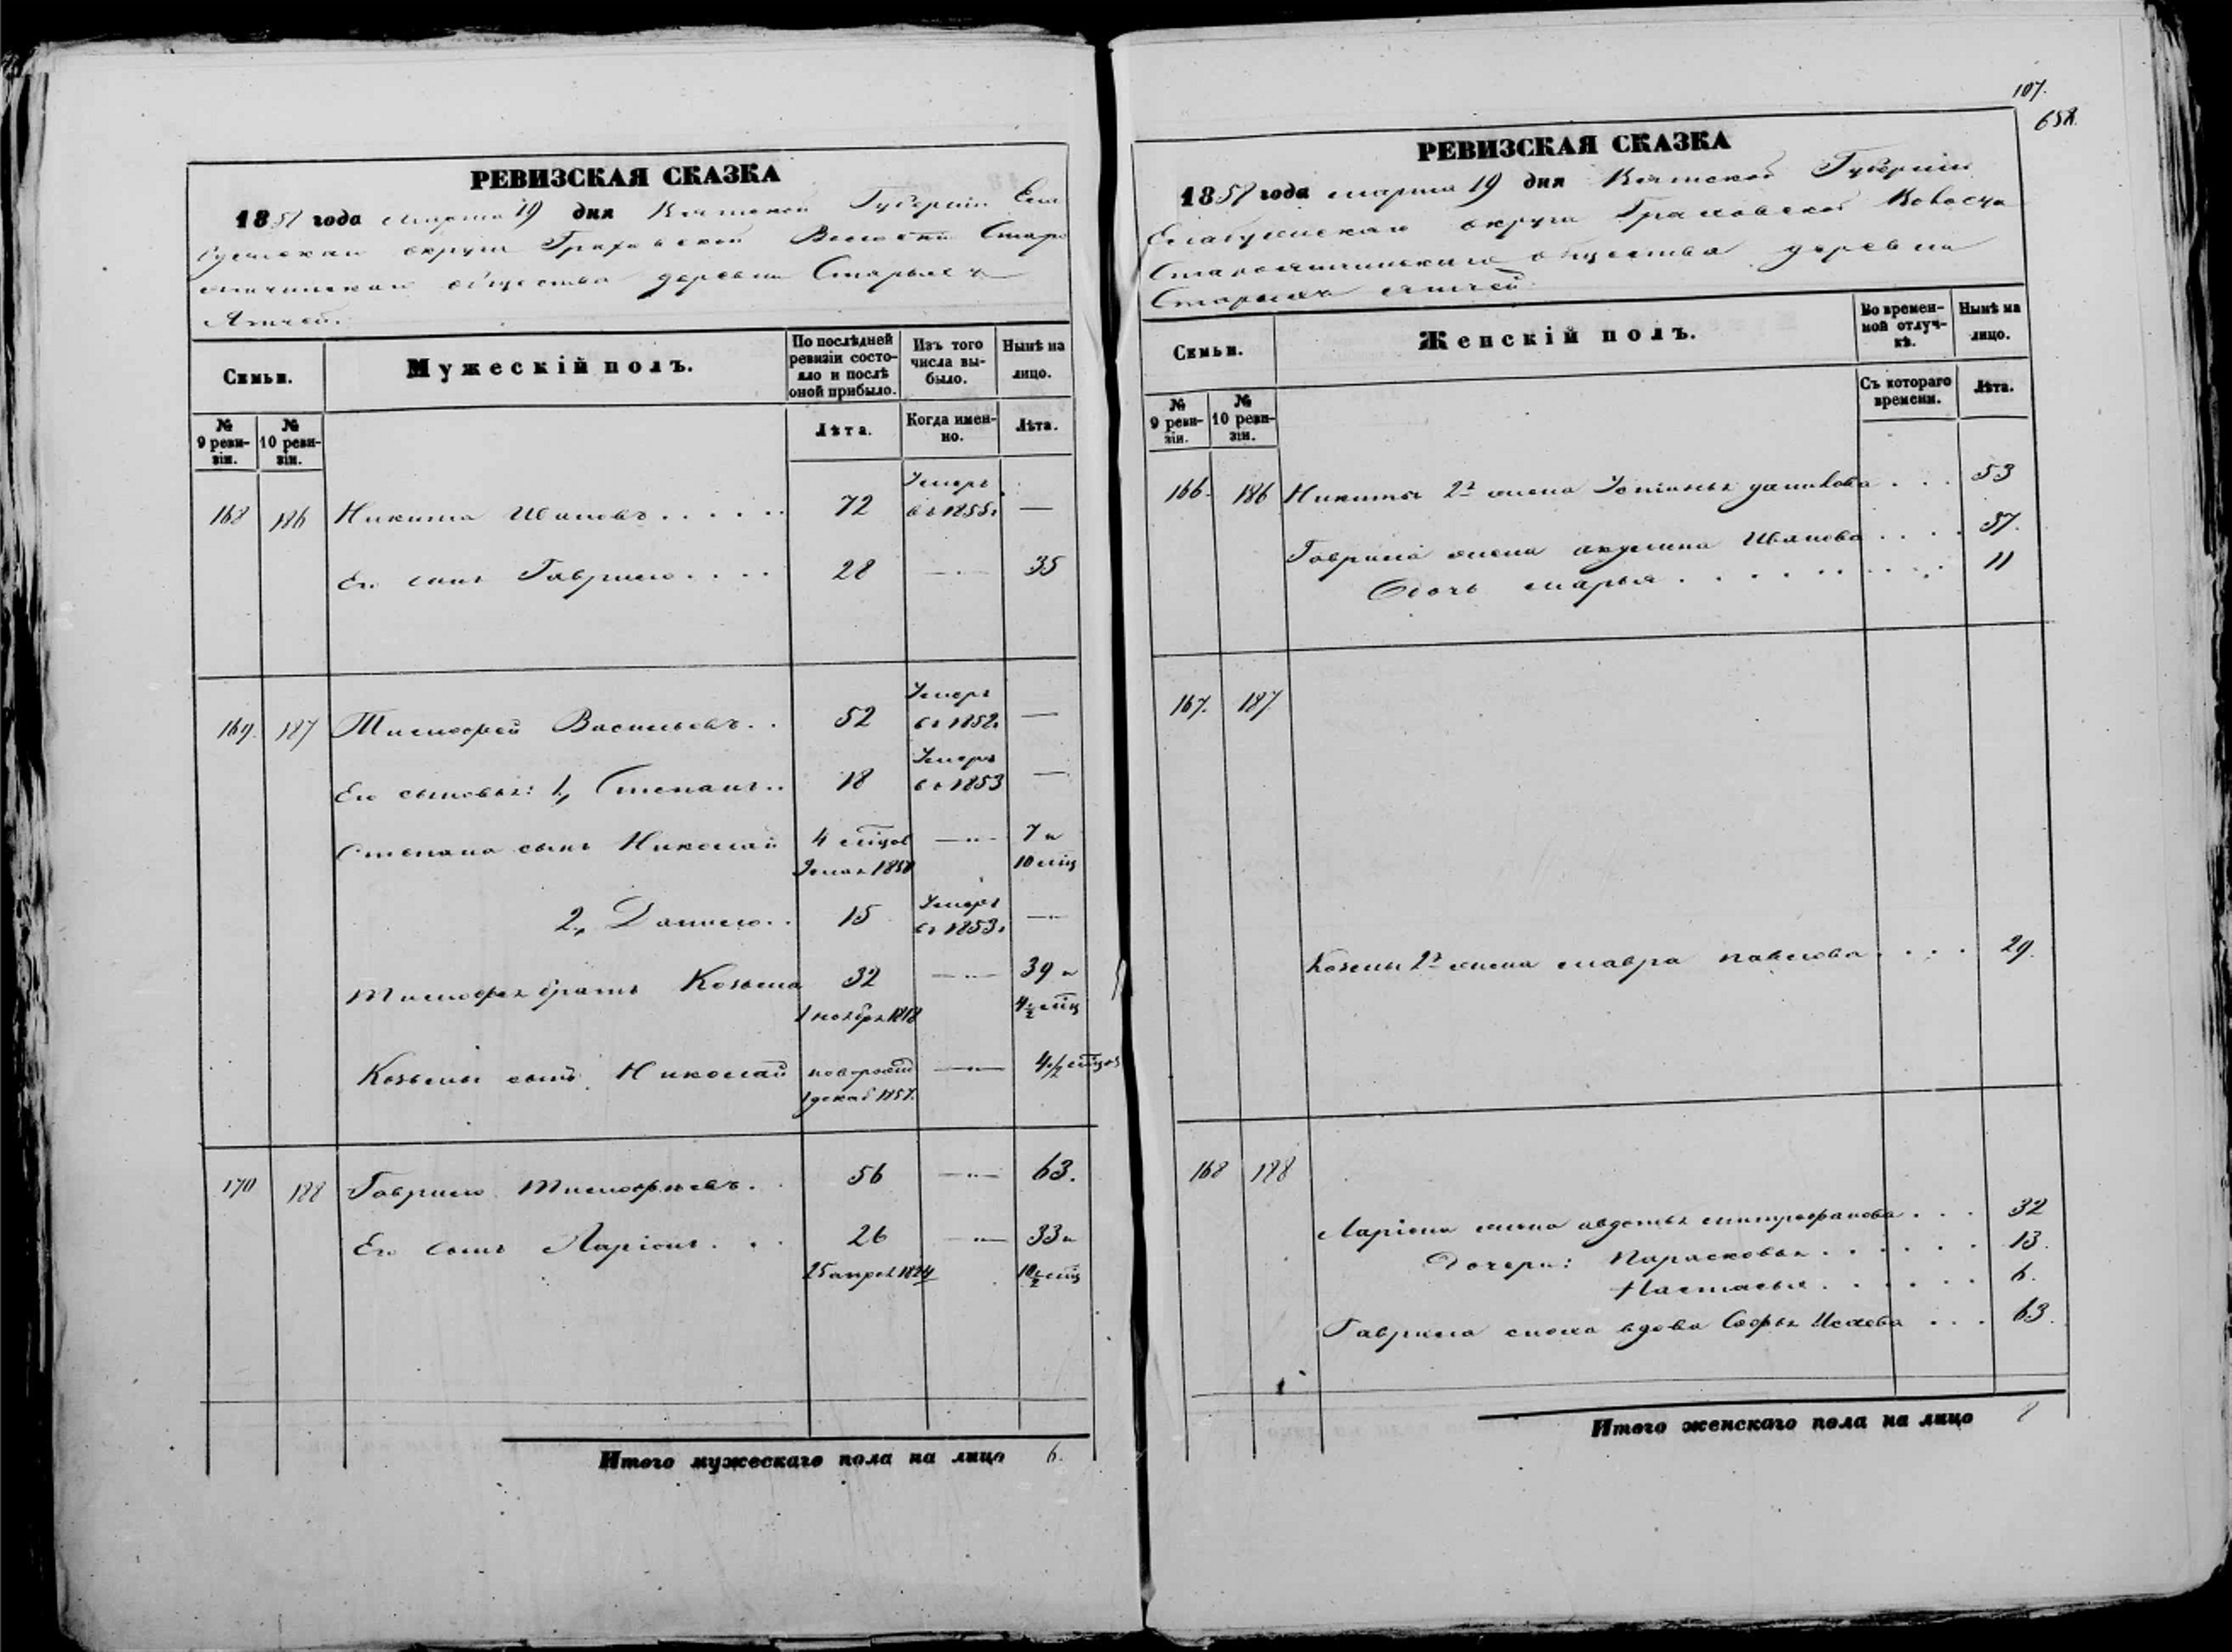 РЕВИЗСКАЯ СКАЗКА
1858 года марта 19 дня Вятской Губерніи Ела
бужскаго округа Граховской Волости Старо
ятчинскаго общества деревни Старыхъ
Ятчей.
Семьи.
Мужескій полъ.
По послѣдней ревизіи состояло и послѣ оной прибыло.
Изъ того числа выбыло.
Нынѣ на лицо.
№ 9 ревизіи.
№ 10 ревизіи.
Лѣта.
Когда именно.
Лѣта.
168 186 Никита Ивановъ 72 Умеръ въ 1855г —
Его сынъ Гаврило 28 — 35
169. 187 Тимофей Васильевъ 52 Умеръ въ 1852г —
Его сыновья: 1, Степанъ 18 Умеръ въ 1853 —
Степана сынъ Николай 4 мѣцов — 7 и
1850 10 мѣц
2, Данило 15 Умеръ въ 1853г —
Тимофея братъ Козьма 32 — 39 и
1 ноября 1818 4½ мѣц
Козьмы сынъ Николай новорожд — 4½ мѣцов
1857.
170 188 Гаврило Тимофѣевъ 56 — 63.
Его сынъ Ларіонъ 26 — 33 и
25 апрел 1824 10½ мѣц
Итого мужескаго пола на лицо 6.
107.
658.
РЕВИЗСКАЯ СКАЗКА
1858 года марта 19 дня Вятской Губерніи
Елабужскаго округа Граховской Волости
Староятчинскаго общества деревни
Старыхъ Ятчей
Семьи.
Женскій полъ.
Во временной отлучкѣ.
Нынѣ на лицо.
№ 9 ревизіи.
№ 10 ревизіи.
Съ котораго времени.
Лѣта.
166. 186 Никиты 2я жена Устинья 53
Гаврила жена акулина Иванова 37.
Дочь марья 11
167. 187
Козьмы 2я жена мавра павлова 29.
168 188
Ларіона жена авдотья митрофанова 32
Дочери: Парасковья 13.
Настасья 6.
Гаврила сноха вдова Софья Исаева 63.
Итого женскаго пола на лицо 8